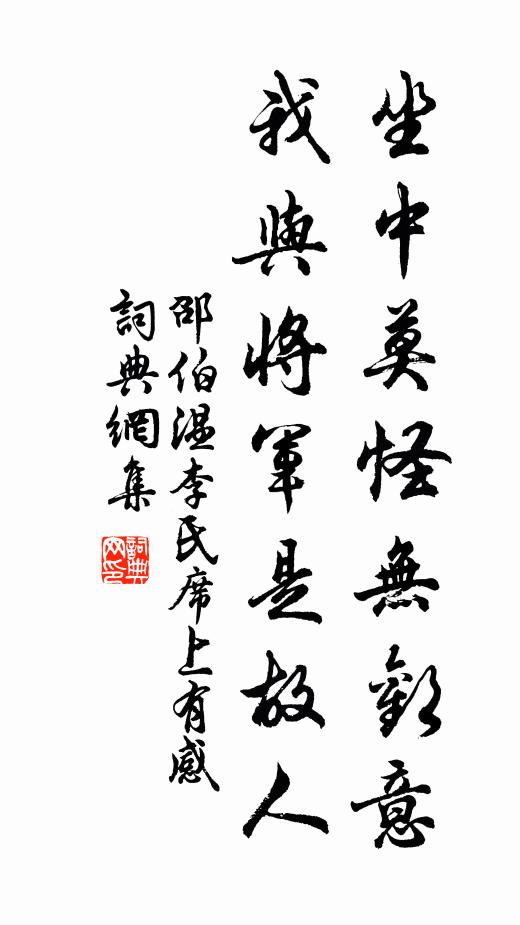 坐中莫怪無歡意
我與將軍是故人
邵伯溫李氏席上有感
詞典網集
詞典网印